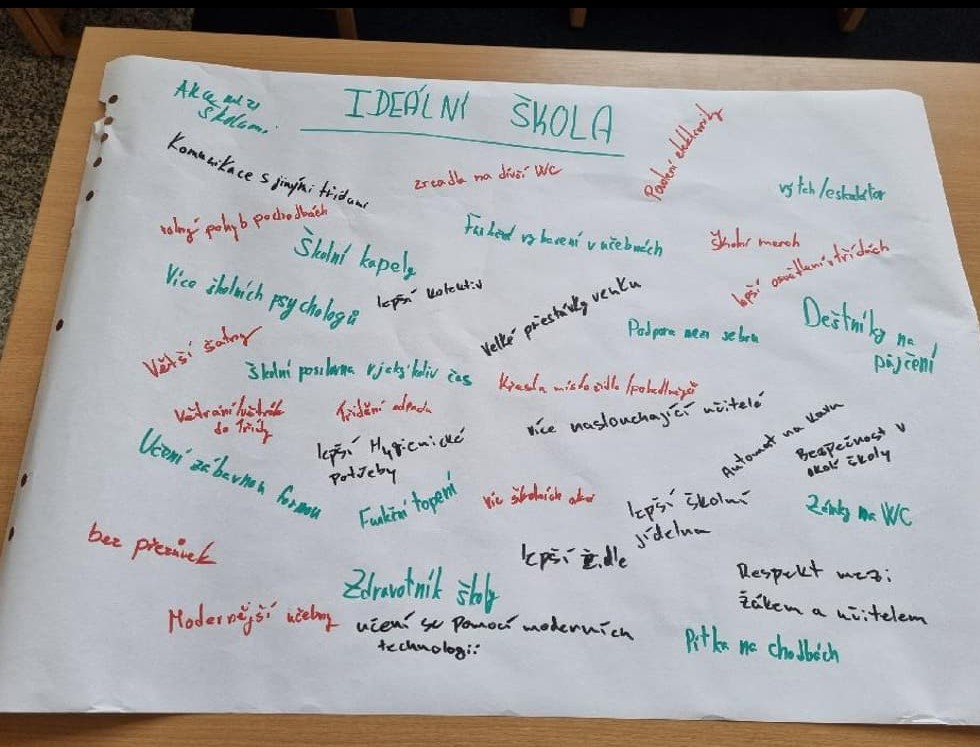 IDEÁLNÍ ŠKOLA
Akce mezi
školami
Komunikace s jinými třídami
zrcadla na dívčí WC
Pouštění elektroniky
výtah/eskalátor
volný pohyb po chodbách
Školní kapely
Funkční vybavení v učebnách
školní merch
lepší osvětlení v třídách
Více školních psychologů
lepší kolektiv
velké přestávky venku
Podpora mezi sebou
Deštníky na
půjčení
Větší šatny
Školní posilovna v jakýkoliv čas
Křesla místo židle/pohodlnější
více naslouchající učitelé
Větrání/větrák
do třídy
Třídění odpadu
lepší Hygienické
potřeby
Automat na kávu
Bezpečnost v
okolí školy
Učení zábavnou formou
Funkční topení
víc školních akcí
lepší školní
jídelna
Zámky na WC
bez přezůvek
lepší židle
Zdravotník školy
Respekt mezi
žákem a učitelem
Modernější učebny
učení se pomocí moderních
technologií
Pítka na chodbách